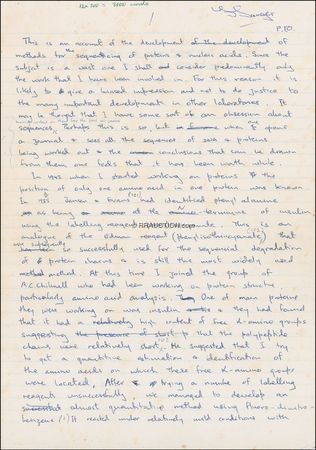 120 m = 3000 words
P.T.O
This is an account of the development of the development of
methods for the sequencing of proteins & nucleic acids. Since the
subject is a vast one I shall consider predominantly only
the work that I have been involved in. For this reason it is
likely to give a biased impression and not to do justice to
the many important developments in other laboratories. It
may be thought that I have some sort of an obsession about
sequences. Perhaps this is so, but when one opens
a journal & sees all the sequences of proteins
being worked out & the conclusions that can be drawn
from them one feels that it has been worth while.
In 1943 when I started working on proteins the
position of only one amino acid in one protein was known
In 1935 Jensen & Evans had identified phenylalanine
as being at the amino-terminus of insulin,
using the labelling reagent phenyl isocyanate. This is an
analogue of the Edman reagent (phenylisothiocyanate) that
was subsequently so successfully used for the sequential degradation
of protein chains & is still the most widely used
method. At this time I joined the group of
A.C. Chibnall who had been working on protein structure,
particularly amino acid analysis. One of main proteins
they were working on was insulin & they had found
that it had a relatively high content of free α-amino groups
suggesting that the polypeptide
chains were relatively short. He suggested that I try
to get a quantitative estimation & identification of
the amino acids on which these free α-amino groups
were located. After trying a number of labelling
reagents unsuccessfully, we managed to develop an
almost quantitative method using fluoro-dinitro-
benzene. It reacted under relatively mild conditions with
RRAUCTION.com